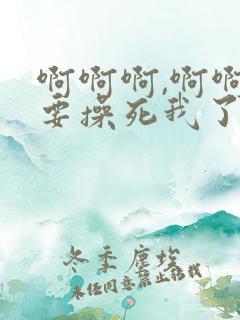 啊啊啊,啊啊
要操死我了
冬季塵埃
未经同意禁止转载